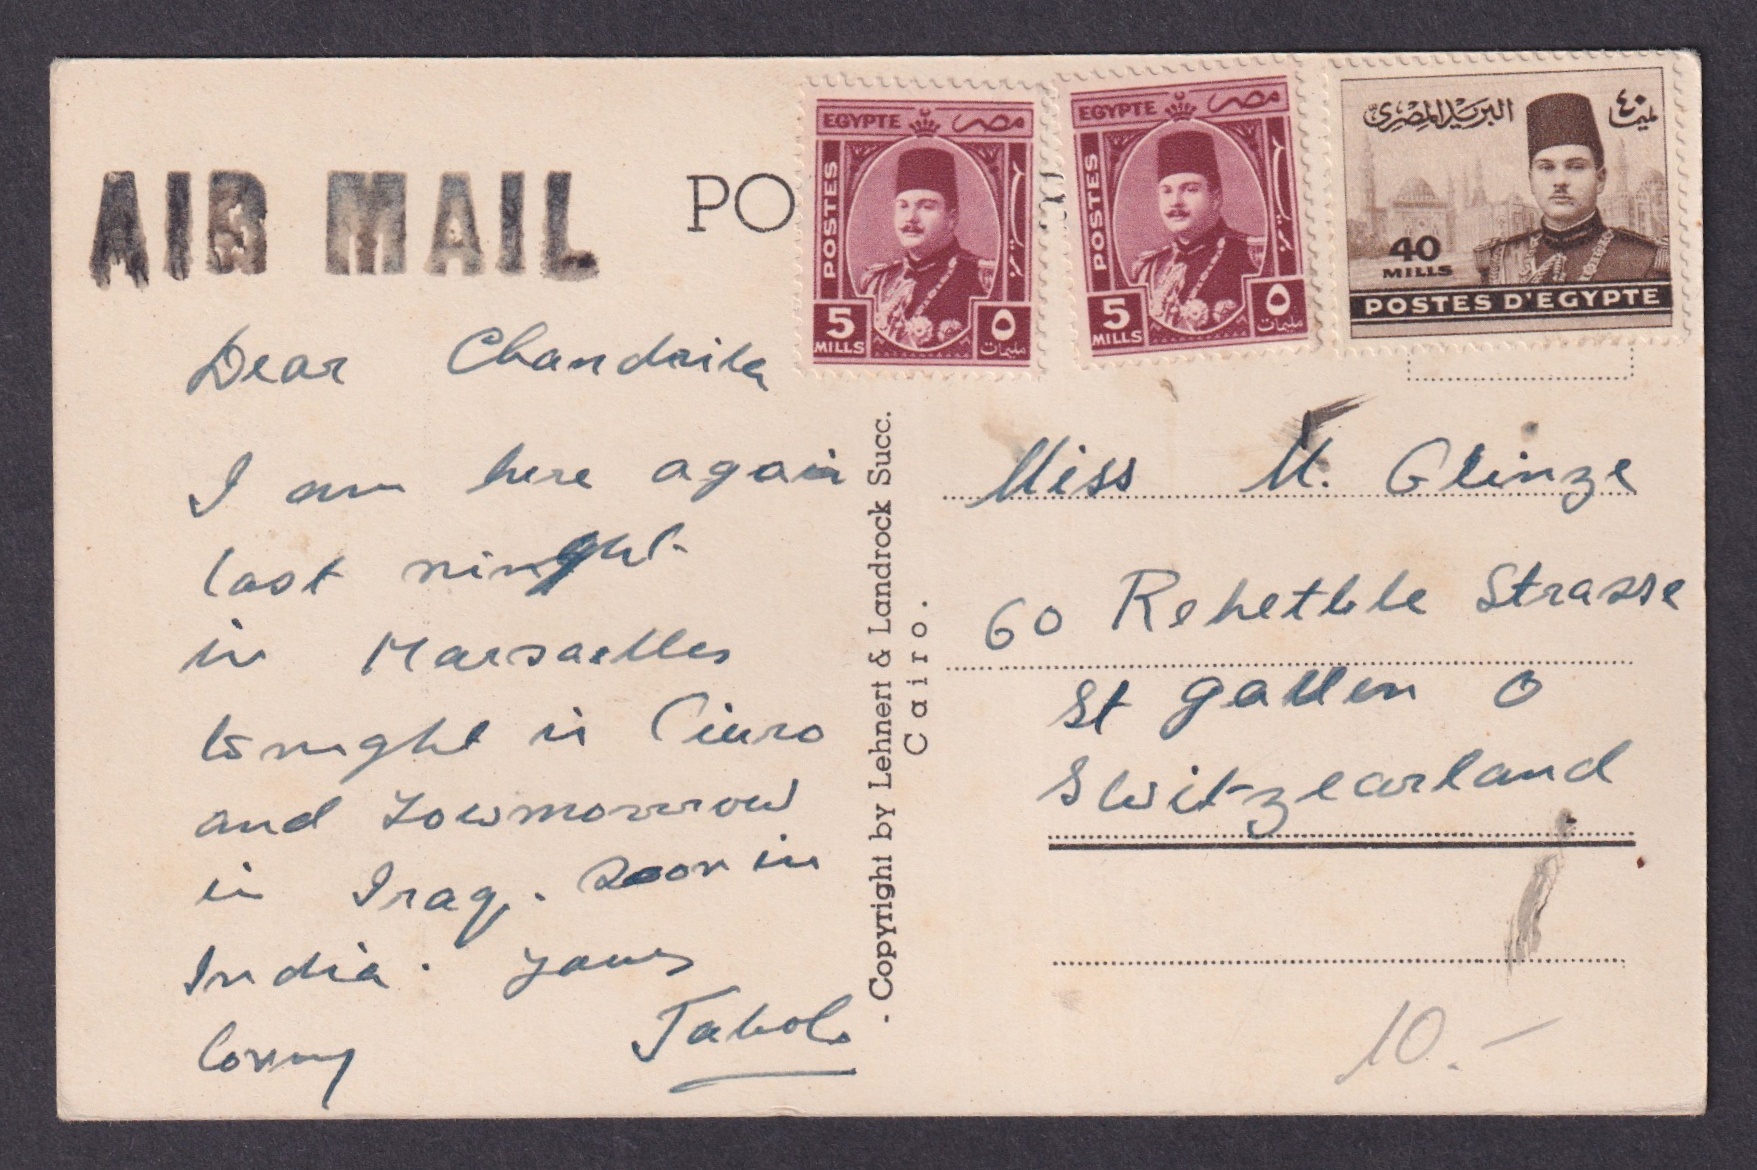 AIR MAIL
PO
EGYPTE مصر
POSTES
5 ٥
MILLS مليمات
EGYPTE مصر
POSTES
5 ٥
MILLS مليمات
البريد المصرى ٤٠
40
MILLS
POSTES D'EGYPTE
Dear Chandrika
I am here again
last night
in Marsaelles
tonight in Ciaro
and Towmorrow
in Iraq. Soon in
India. yours
loving
- Copyright by Lehnert & Landrock Succ.
Cairo.
Miss M. Glinze
60 Strasse
St gallen O
Switzearland
10.-